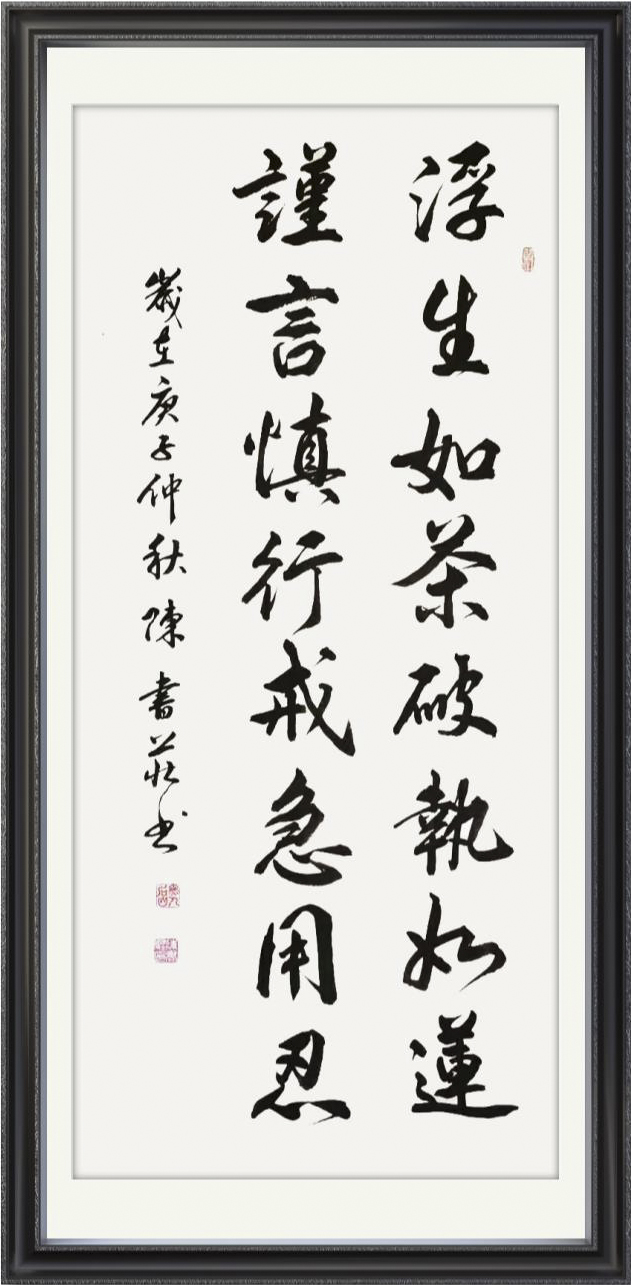 浮生如茶破執如蓮
謹言慎行戒急用忍
歲在庚子仲秋陳書莊书